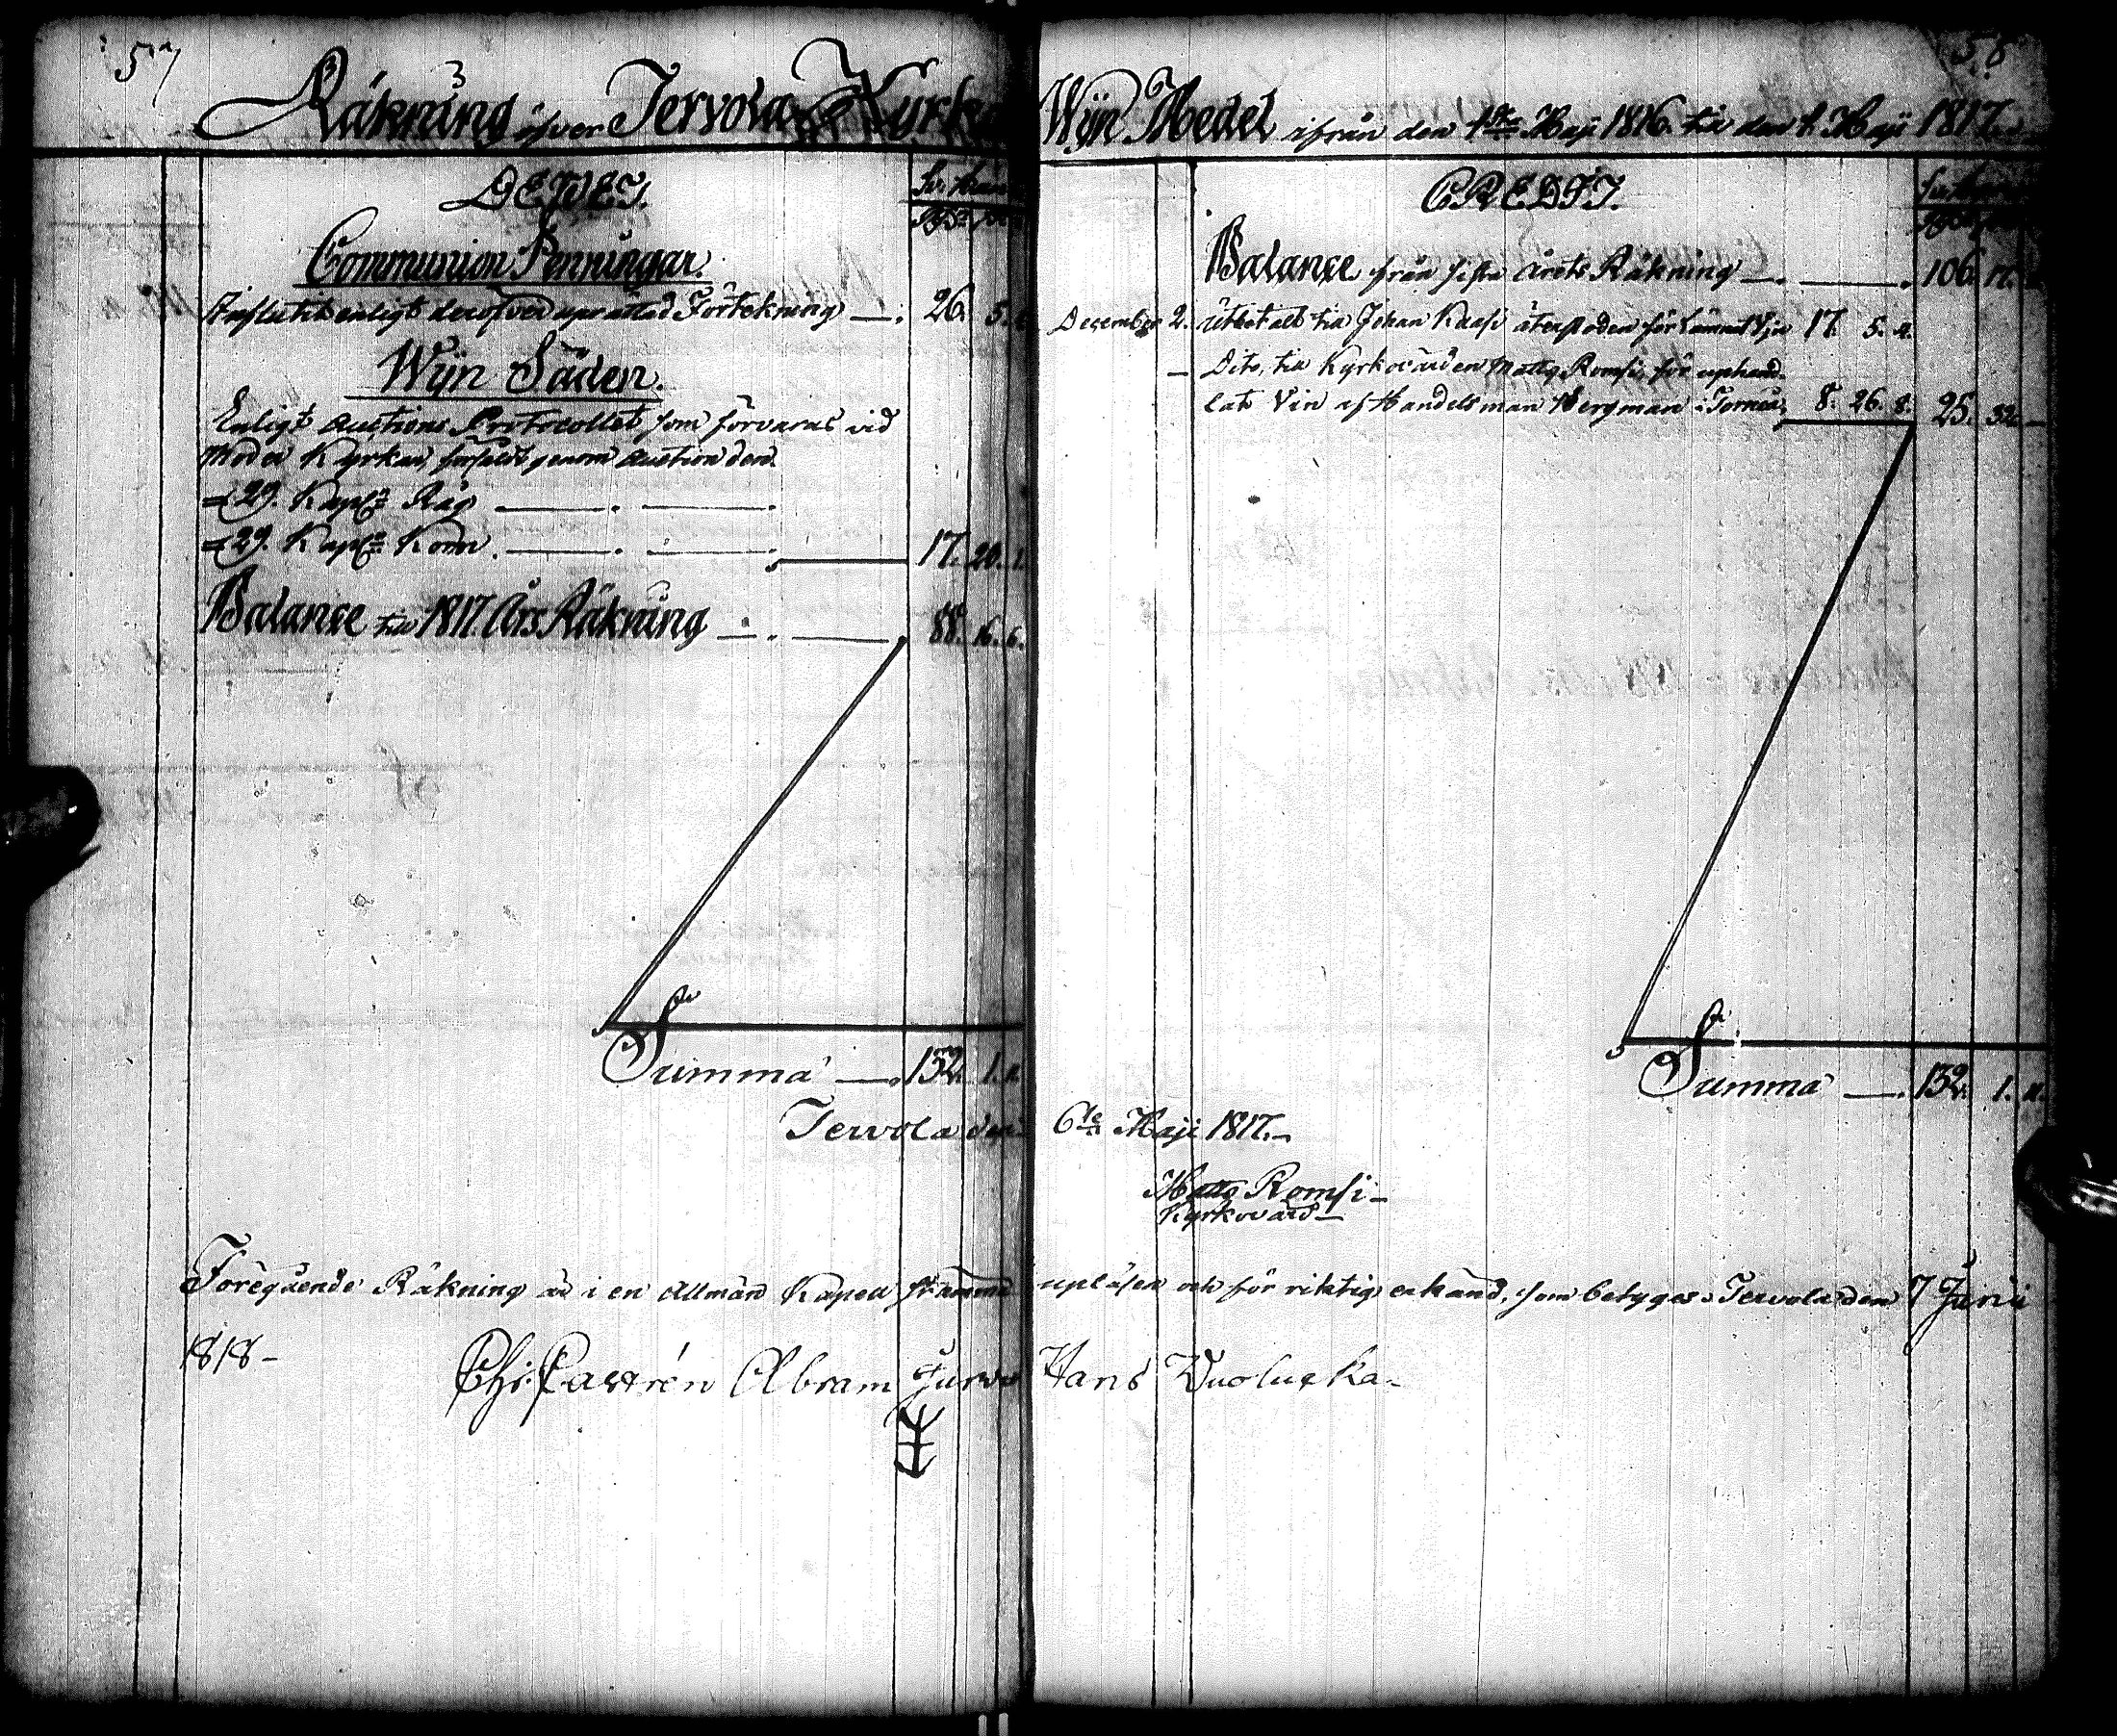 57
Räkning öfver Tervola Kyrko
DEBET.
Communion Penningar.
Influtit enligt deröfver uprättad Förtekning — 26. 5.
Wijn Säden.
Enligt Auctions Protocollet som förvaras vid
Moder Kyrkan, försåldt genom Auction den
29. Kapp:r Råg
29. Kapp:r Korn. 17. 20. 1.
Balance till 1817 Års Räkning — 88. 16. 6.
Summa — 132. 1. 11.
Tervola den
Föregående Räkning är i en Allmän Kapell stämma
1818 –
Chr: Castrén Abram
58
Wijn Medel ifrån den 1sta Maji 1816. till den 1 Maji 1817.
CREDIT.
Balance från sista årets Räkning — 106. 17.
December 2. Utbetalt till Johan Kaasi återstoden för lämnat Vin 17. 5. 4.
— Dito, till Kyrkovärden Matts Romsi, för uphand-
lat Vin af Handelsman Bergman i Torneå, 8. 26. 8. 25. 32. —
Summa — 132. 1. 11.
6te Maji 1817. –
Matts Romsi –
Kyrkovärd –
upläsen och för riktig erkänd, som betygas. Tervola den 7 Junii
Hans Wuoluska –